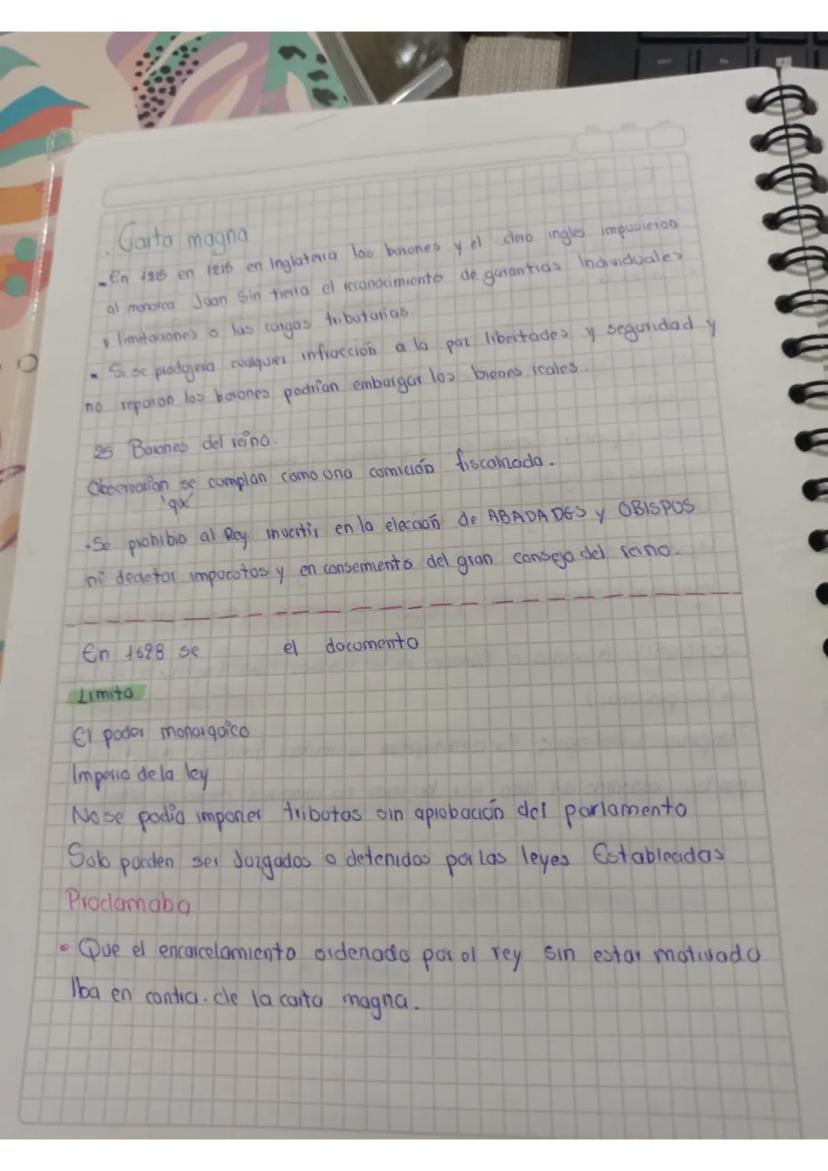 . Carta magna
- En 1215 en 1215 en Inglaterra los barones y el clero ingles impusieron
al monarca Juan Sin tierra el reconocimiento de garantias Individuales
y limitaciones a las cargas tributarias.
- Si se produjera cualquier infracción a la paz libertades y seguridad y
no reparan los barones podrían embargar los bienes reales
25 Barones del reino.
Observarian se complan como una comición
'que'
- Se prohibio al Rey invertir en la elección de ABADADES y OBISPOS
ni decretar impuestos y en consemiento del gran consejo del reino.
En 1628 se el documento
Limita
El poder monarquico
Imperio de la ley
No se podia imponer tributos sin aprobación del parlamento
Solo pueden ser Juzgados o detenidos por las leyes Establecidas
Proclamaba
• Que el encarcelamiento ordenado por el rey sin estar motivado
Iba en contra. de la carta magna.